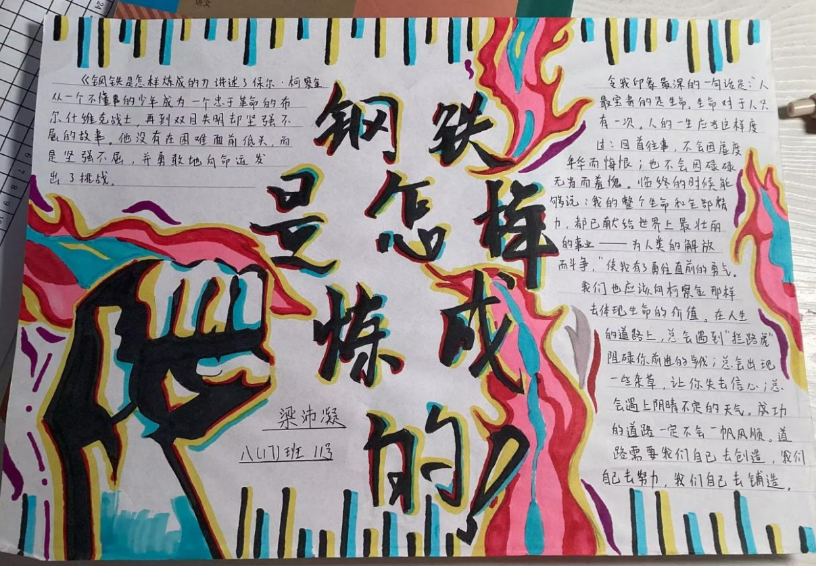 《钢铁是怎样炼成的》讲述了保尔·柯察金
从一个不懂事的少年成为一个忠于革命的布
尔什维克战士,再到双目失明却坚强不
屈的故事。他没有在困难面前低头,而
是坚强不屈,并勇敢地向命运发
出了挑战。
钢铁
是怎样
炼成
的
梁沛凝
八(17)班 11号
令我印象最深的一句话是:"人
最宝贵的是生命,生命对于人只
有一次,人的一生应当这样度
过:回首往事,不会因虚度
年华而悔恨;也不会因碌碌
无为而羞愧。临终的时候能
够说:我的整个生命和全部精
力,都已献给世界上最壮丽
的事业——为人类的解放
而斗争,"使我有了勇往直前的勇气。
我们也应该向柯察金那样
去体现生命的价值,在人生
的道路上,总会遇到"拦路虎"
阻碍你前进的步伐;总会出现
一些杂草,让你失去信心;总
会遇上阴晴不定的天气。成功
的道路一定不会一帆风顺,道
路需要我们自己去创造,我们
自己去努力,我们自己去铺造。